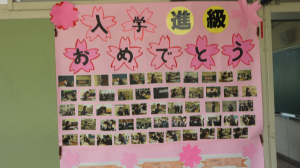 入学 進級
おめでとう